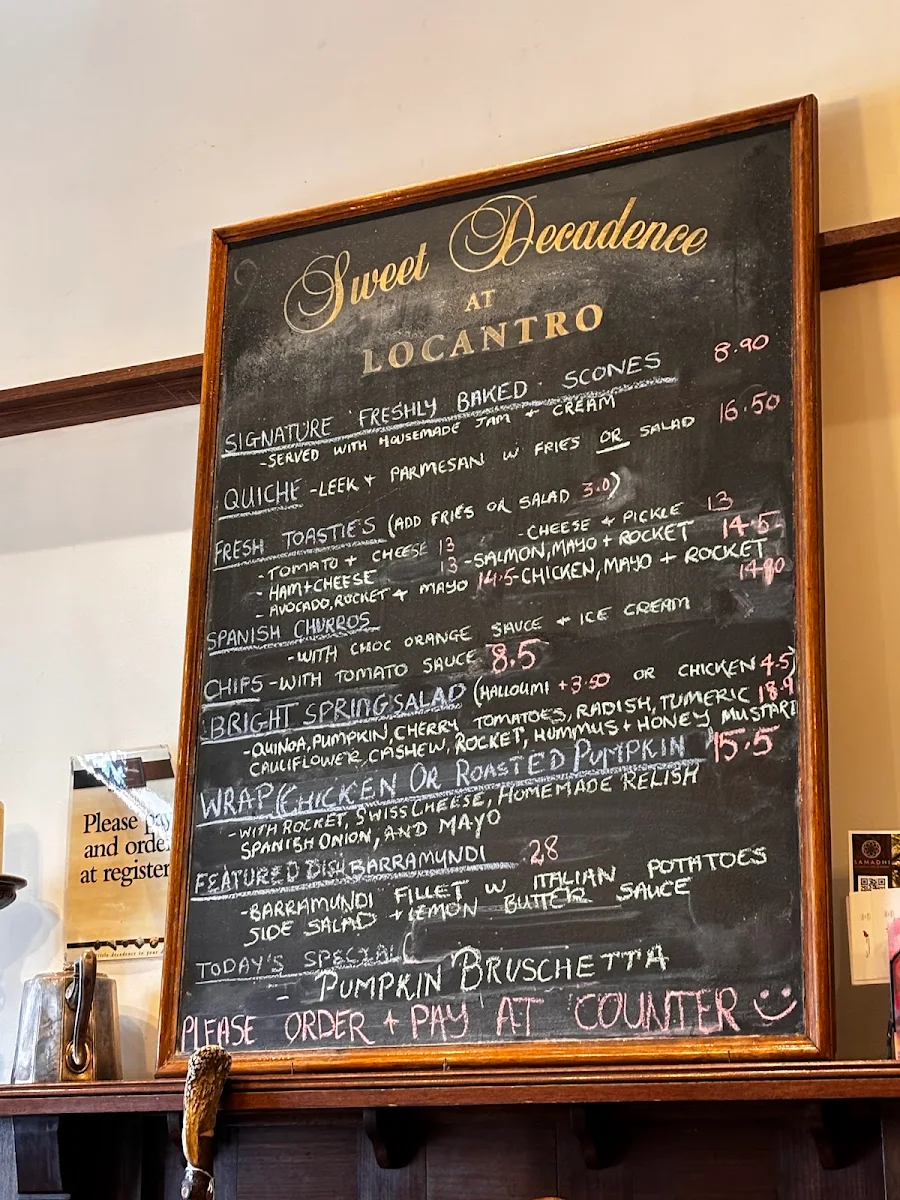 Sweet Decadence
AT
LOCANTRO
SIGNATURE FRESHLY BAKED SCONES 8.90
-SERVED WITH HOUSEMADE JAM + CREAM
QUICHE -LEEK + PARMESAN W FRIES OR SALAD 16.50
FRESH TOASTIES (ADD FRIES OR SALAD 3.0)
-TOMATO + CHEESE 13 -CHEESE + PICKLE 13
-HAM+CHEESE 13 -SALMON, MAYO + ROCKET 14.5
-AVOCADO, ROCKET + MAYO 14.5 -CHICKEN, MAYO + ROCKET
SPANISH CHURROS 14.90
-WITH CHOC ORANGE SAUCE + ICE CREAM
CHIPS -WITH TOMATO SAUCE 8.5
BRIGHT SPRING SALAD (HALLOUMI +3.50 OR CHICKEN 4.5)
-QUINOA, PUMPKIN, CHERRY TOMATOES, RADISH, TUMERIC 18.9
CAULIFLOWER, CASHEW, ROCKET, HUMMUS + HONEY MUSTARD
WRAP (CHICKEN OR ROASTED PUMPKIN 15.5
-WITH ROCKET, SWISS CHEESE, HOMEMADE RELISH
SPANISH ONION, AND MAYO
FEATURED DISH BARRAMUNDI 28
-BARRAMUNDI FILLET W ITALIAN POTATOES
SIDE SALAD + LEMON BUTTER SAUCE
TODAY'S SPECIAL
- PUMPKIN BRUSCHETTA
PLEASE ORDER + PAY AT COUNTER
Please pay
and order
at register
SAMADHI